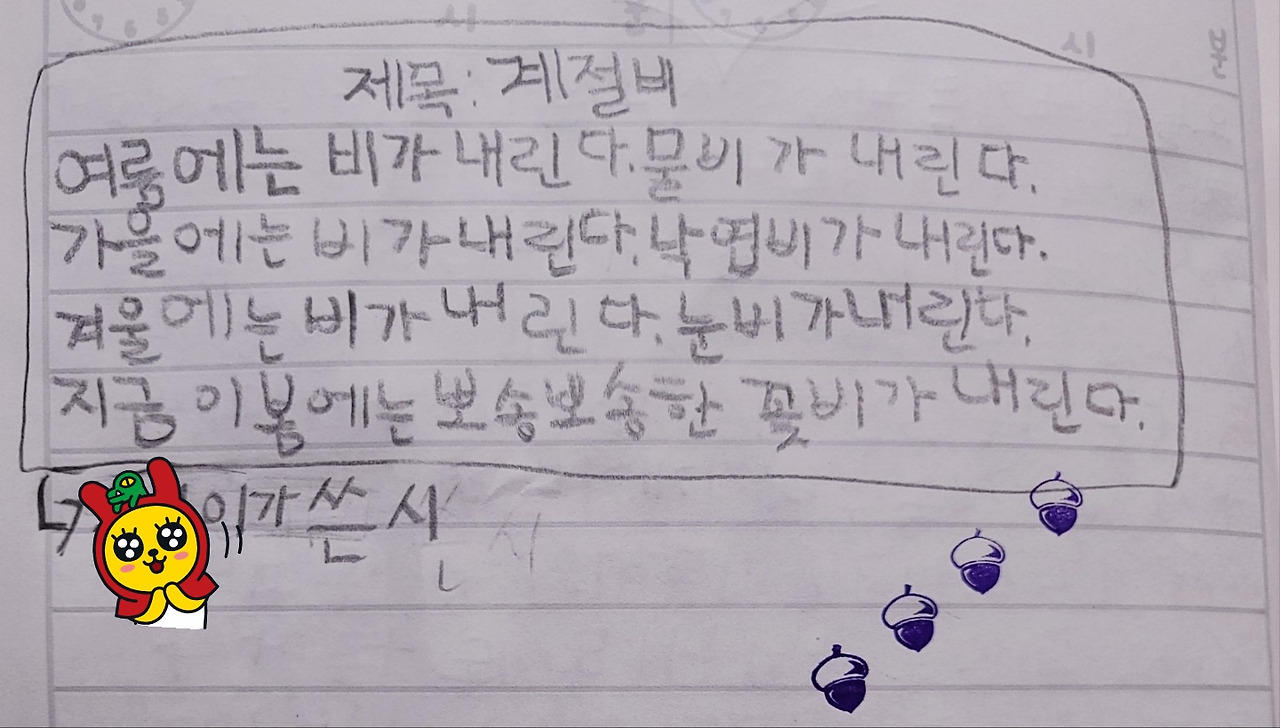 제목: 계절비
여름에는 비가 내린다.물비가 내린다.
가을에는 비가 내린다.낙엽비가 내린다.
겨울에는 비가 내린다.눈비가 내린다.
지금 이 봄에는 뽀송뽀송한 꽃비가 내린다.
이가 쓴 시